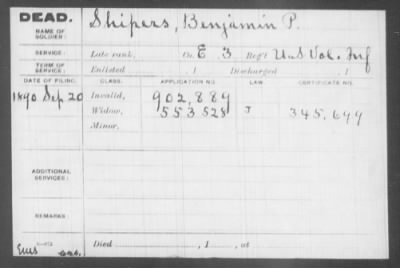 DEAD.
NAME OF SOLDIER: Shipers, Benjamin P.
SERVICE: Late rank, Co. E 3 Reg't U.S. Vol. Inf
TERM OF SERVICE: Enlisted , 1 Discharged , 1
DATE OF FILING. CLASS. APPLICATION NO. LAW. CERTIFICATE NO.
1890 Sep 20 Invalid, 902,889
Widow, 553528 J 345,699
Minor,
ADDITIONAL SERVICES:
REMARKS:
Died , 1 , at